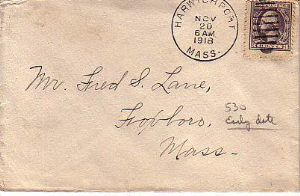 HARWICHPORT
NOV
20
6 AM
1918
MASS.
Mr. Fred S. Lane,
Foxboro,
Mass.
530
Early date